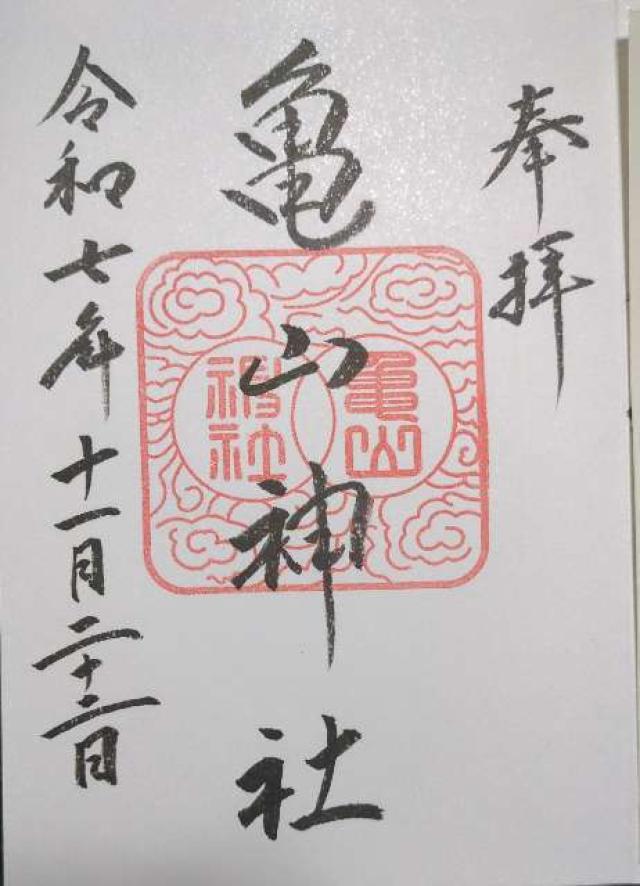 奉拝
亀山神社
亀山
神社
令和七年十一月二十三日